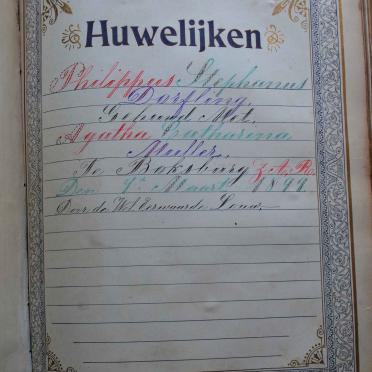 Huwelijken
Philippus Stephanus
Dorfling
Getrouwd Met
Agatha Catharina
Muller
Te Boksburg Z. A. R.
Den 7e Maart 1899
Door de Wl. Eerwaarde